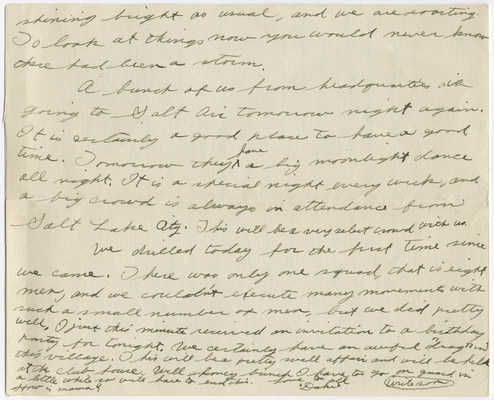 shining bright as usual, and we are roasting.
To look at things now you would never know
there had been a storm.
A bunch of us from headquarters is
going to Salt Air tomorrow night again.
It is certainly a good place to have a good
time. Tomorrow they have a big moonlight dance
all night. It is a special night every week, and
a big crowd is always in attendance from
Salt Lake City. This will be a very select crowd with us.
We drilled today for the first time since
we came. There was only one squad that is eight
men, and we couldn't execute many movements with
such a small number of men, but we did pretty
well. I just this minute received an invitation to a birthday
party for tonight. We certainly have an awful drag in
this village. This will be a pretty swell affair and will be held
at the club house. Well honey bunch I have to go on guard in
a little while so will have to end this. Love to all
How is mama? Write soon